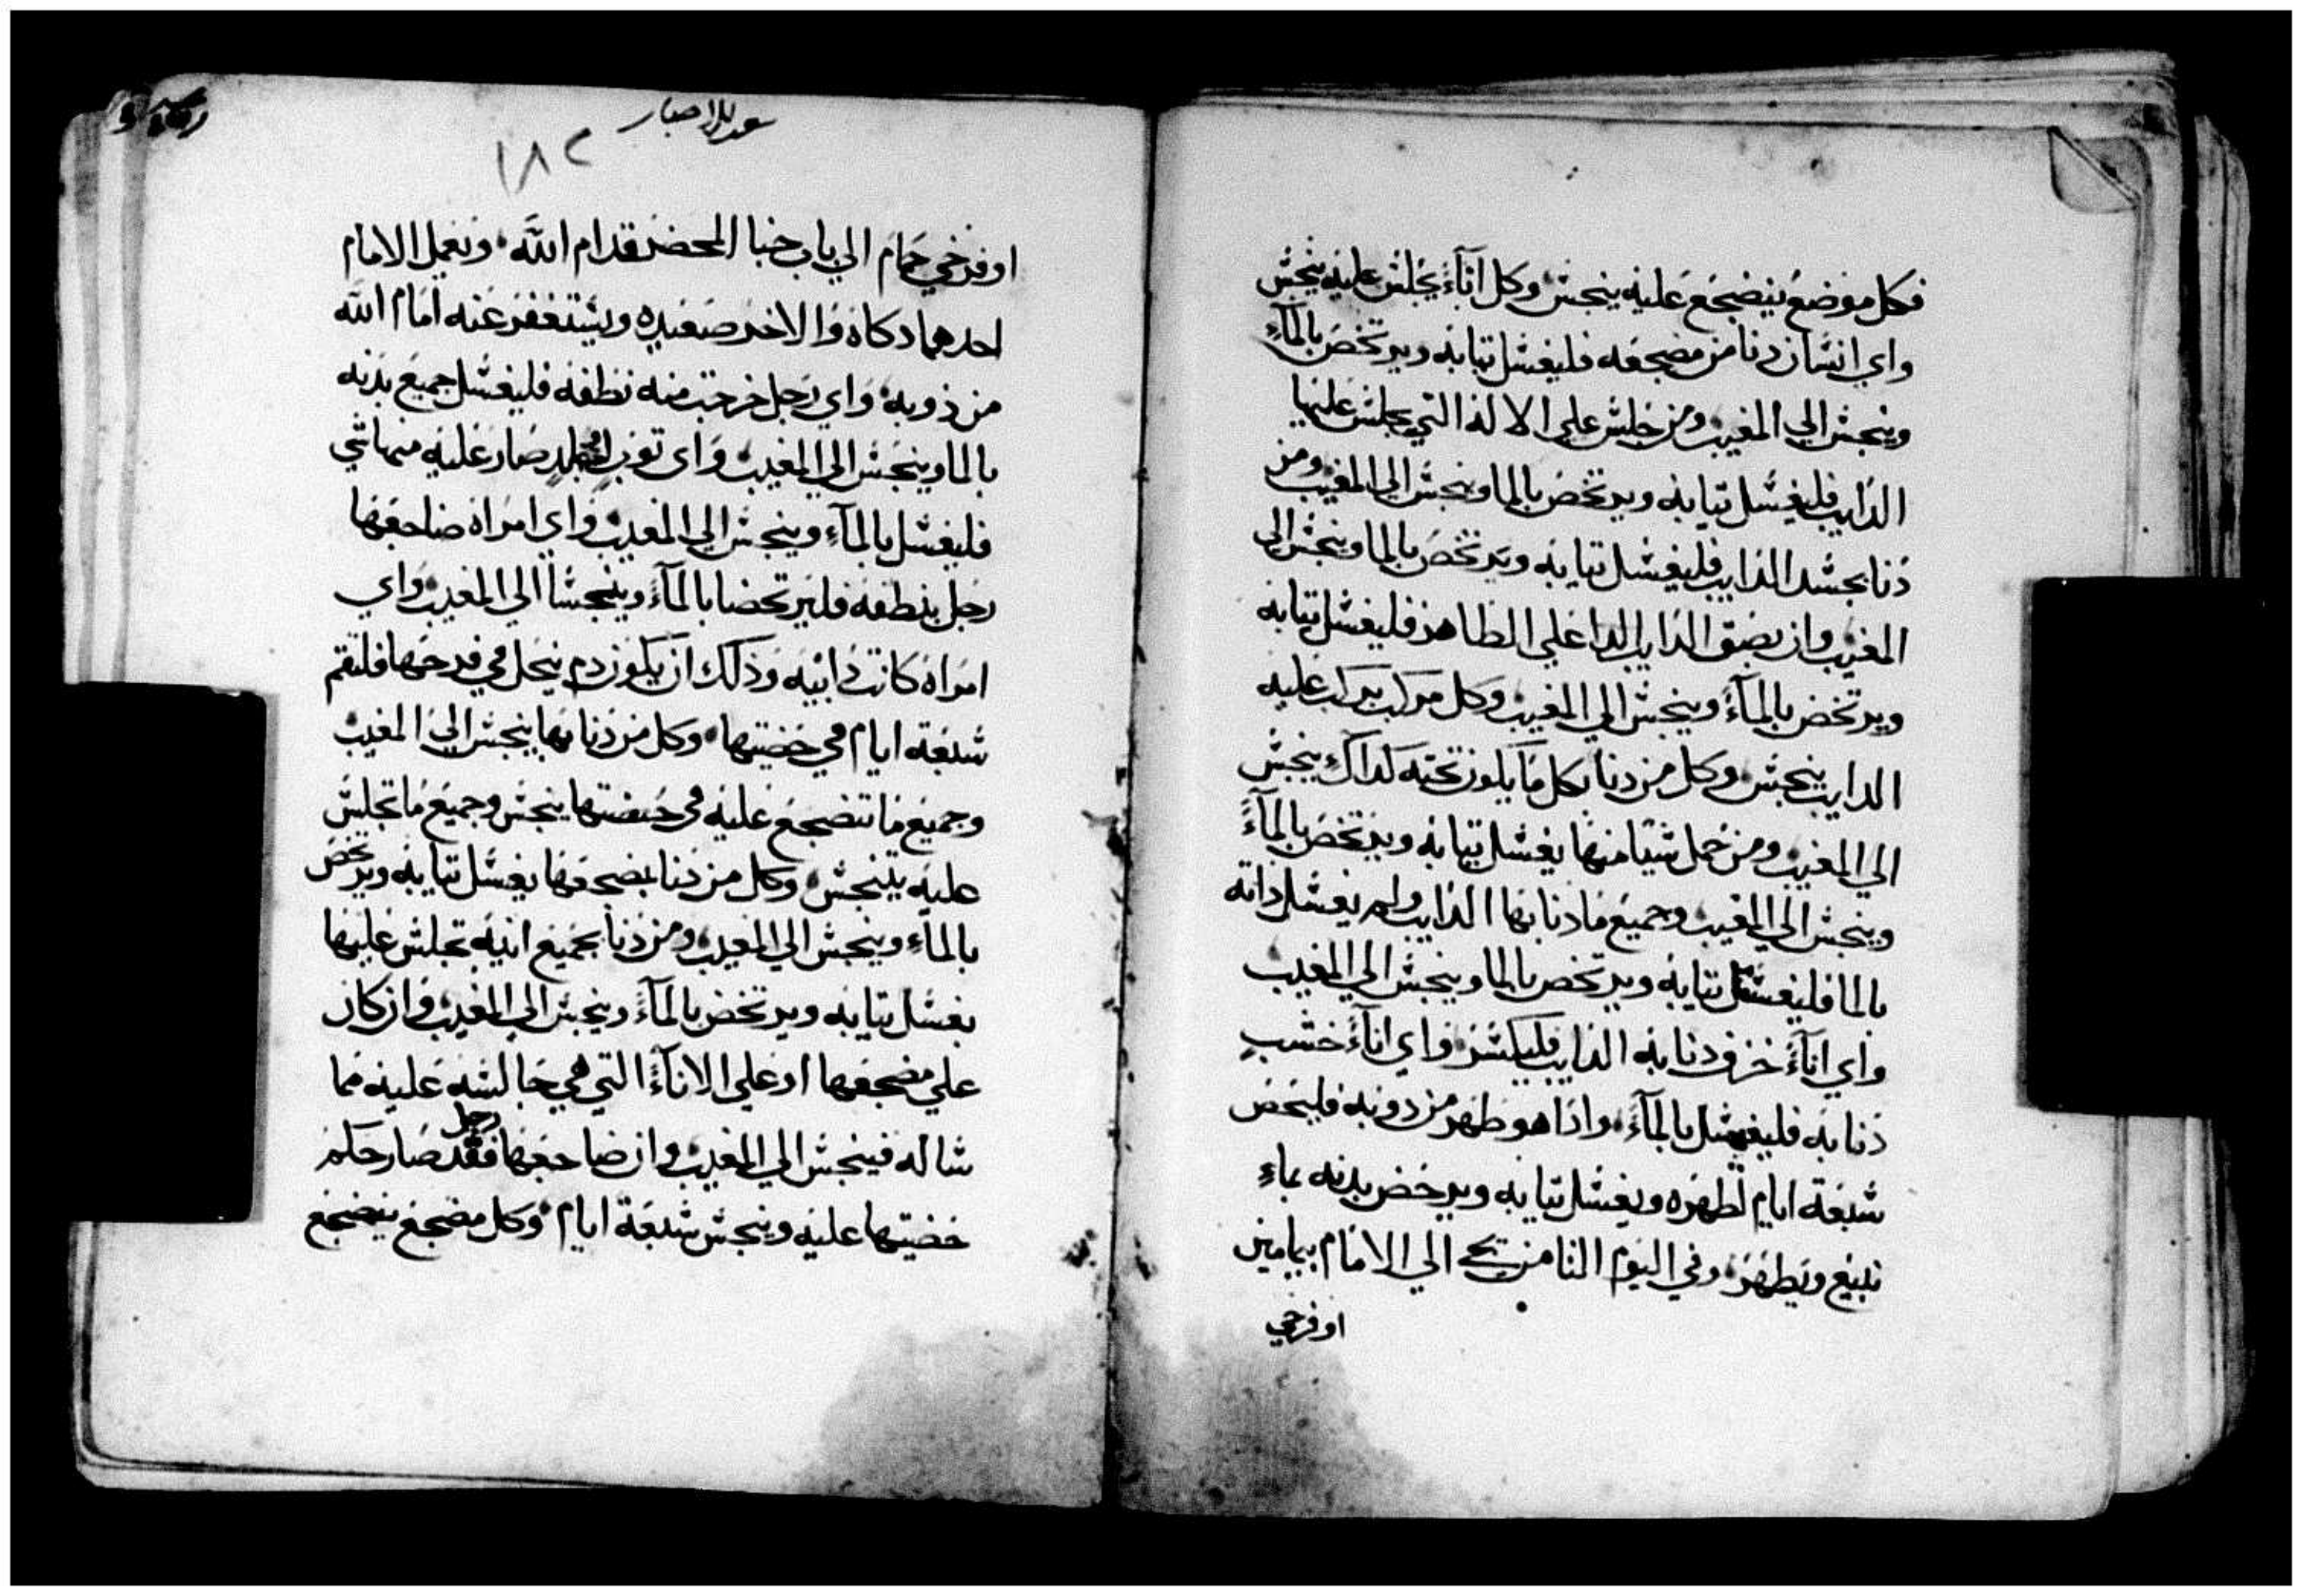 فكل موضع ينضجع عليه ينجس وكل اناء يجلس عليه ينجس
واي انسان دنا من مضجعه فليغسل ثيابه ويرتحض بالماء
وينجس الي المغيب ومن جلس علي الالة التي يجلس عليها
الذايب فليغسل ثيابه ويرتحض بالما وينجس الي المغيب ومن
دنا بجسد الذايب فليغسل ثيابه ويرتحض بالما وينجس الي
المغيب وان بصق الذايب علي الطاهر فليغسل ثيابه
ويرتحض بالماء وينجس الي المغيب وكل مركب يركب عليه
الذايب ينجس وكل من دنا بكل ما يكون تحته كذلك ينجس
الي المغيب ومن حمل شيا منها يغسل ثيابه ويرتحض بالماء
وينجس الي المغيب وجميع ما دنا بها الذايب ولم يغسل ذاته
بالما فليغسل ثيابه ويرتحض بالما وينجس الي المغيب
واي اناء خزف دنا به الذايب فليكسر واي اناء خشب
دنا به فليغسل بالماء واذا هو طهر من ذوبه فليحض
سبعة ايام لطهره ويغسل ثيابه ويرحض بدنه بماء
نبيع ويطهر وفي اليوم الثامن يجي الي الامام بيمامين
او فرخي
١٨٢
او فرخي حمام الي باب خبا المحضر قدام الله ويعمل الامام
احدهما دكاة والاخر صعيده ويستغفر عنه امام الله
من ذوبه واي رجل خرجت منه نطفه فليغسل جميع بدنه
بالما وينجس الي المغيب واي ثوب او جلد صار عليه منها شي
فليغسل بالماء وينجس الي المغيب واي امراة ضاجعها
رجل بنطفه فليرتحضا بالماء وينجسا الي المغيب واي
امراة كانت ذايبه وذلك ان يكون دم ينحل في فرجها فلتقم
سبعة ايام في حيضتها وكل من دنا بها ينجس الي المغيب
وجميع ما تنضجع عليه في حيضتها ينجس وجميع ما تجلس
عليه يتنجس وكل من دنا بمضجعها يغسل ثيابه ويرتحض
بالماء وينجس الي المغيب ومن دنا بجميع انيه تجلس عليها
يغسل ثيابه ويرتحض بالماء وينجس الي المغيب وان كان
علي مضجعها او علي الاناء التي هي جالسه عليه مما
شاله فينجس الي المغيب وان ضاجعها رجل فقد صار حكم
حيضتها عليه وينجس سبعة ايام وكل مضجع ينضجع